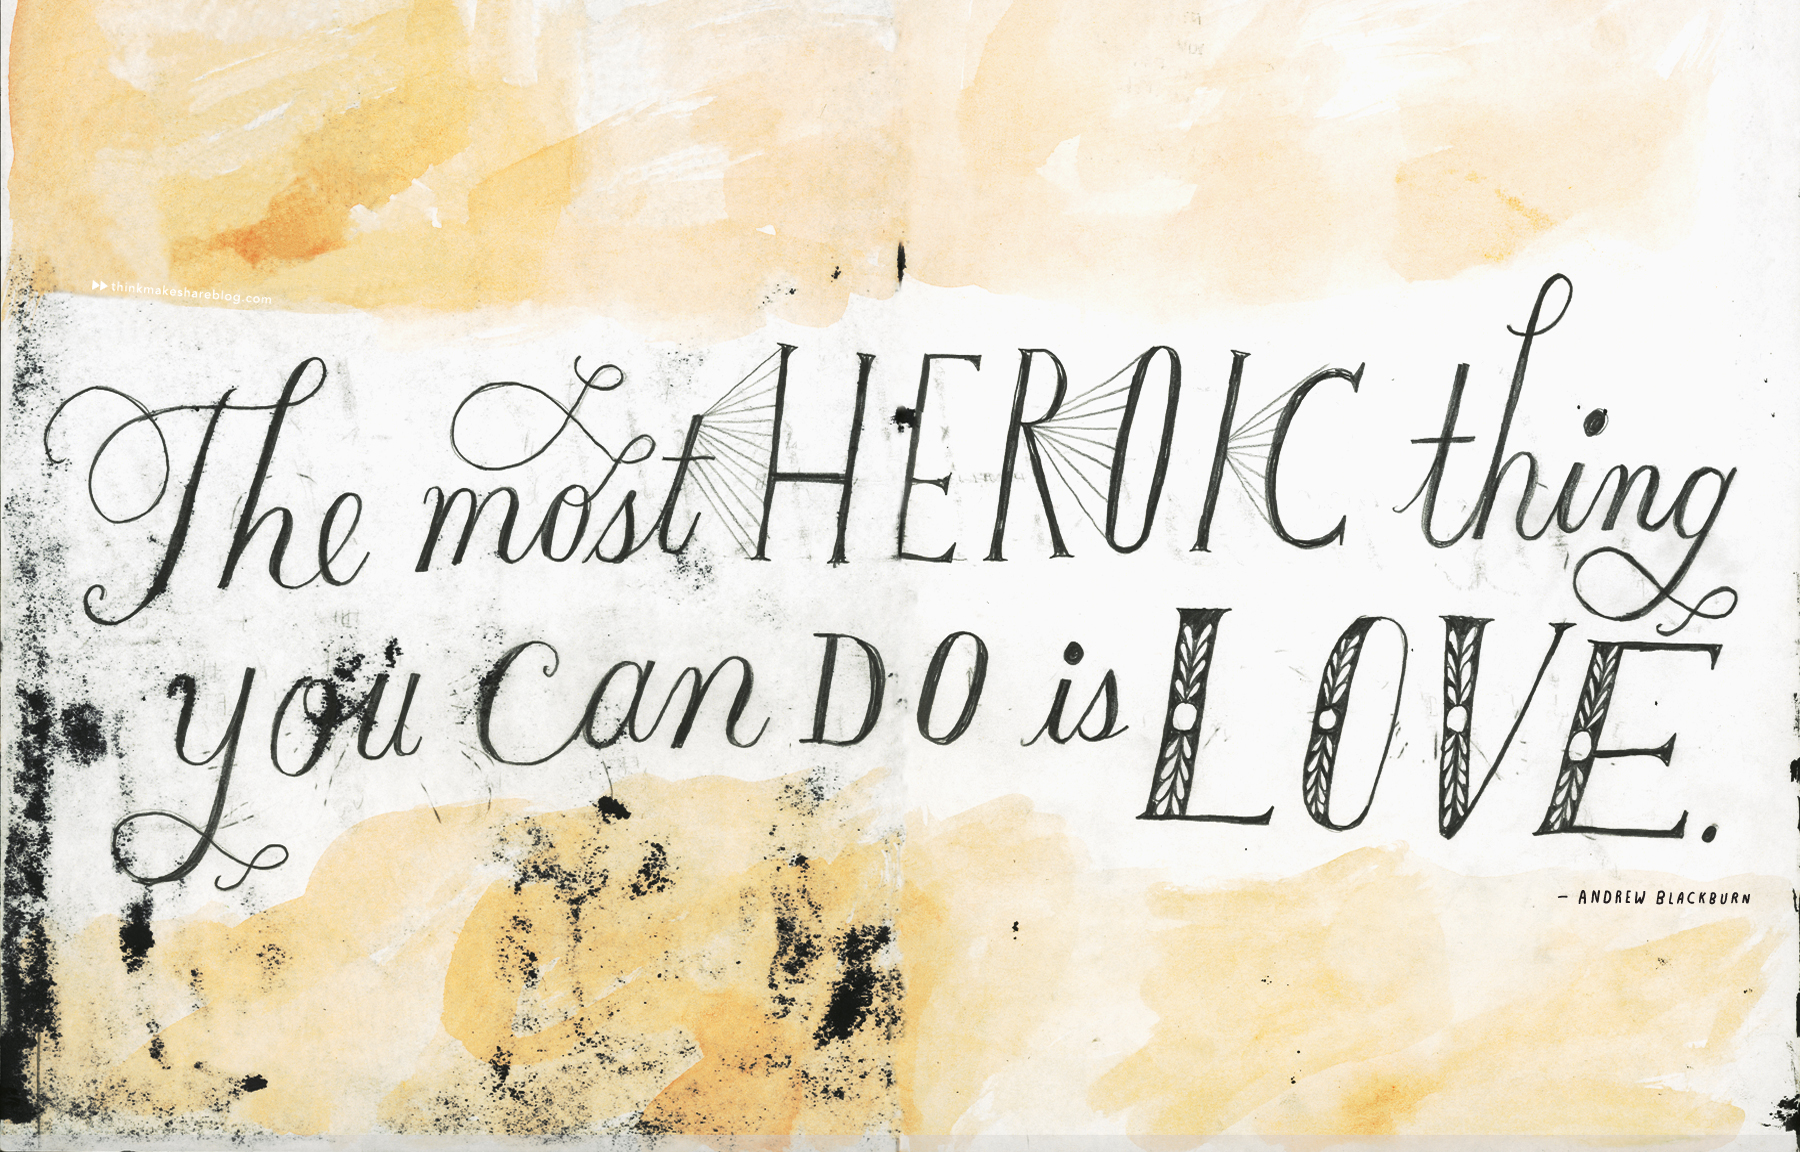 thinkmakeshareblog.com
The most HEROIC thing
you Can DO is LOVE.
– ANDREW BLACKBURN